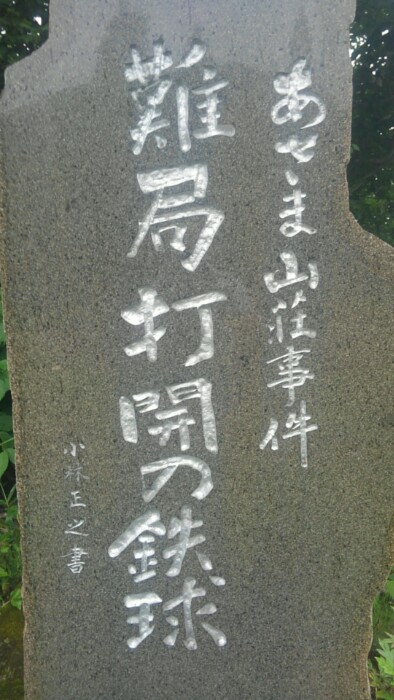 あさま山荘事件
難局打開の鉄球
小林正之書